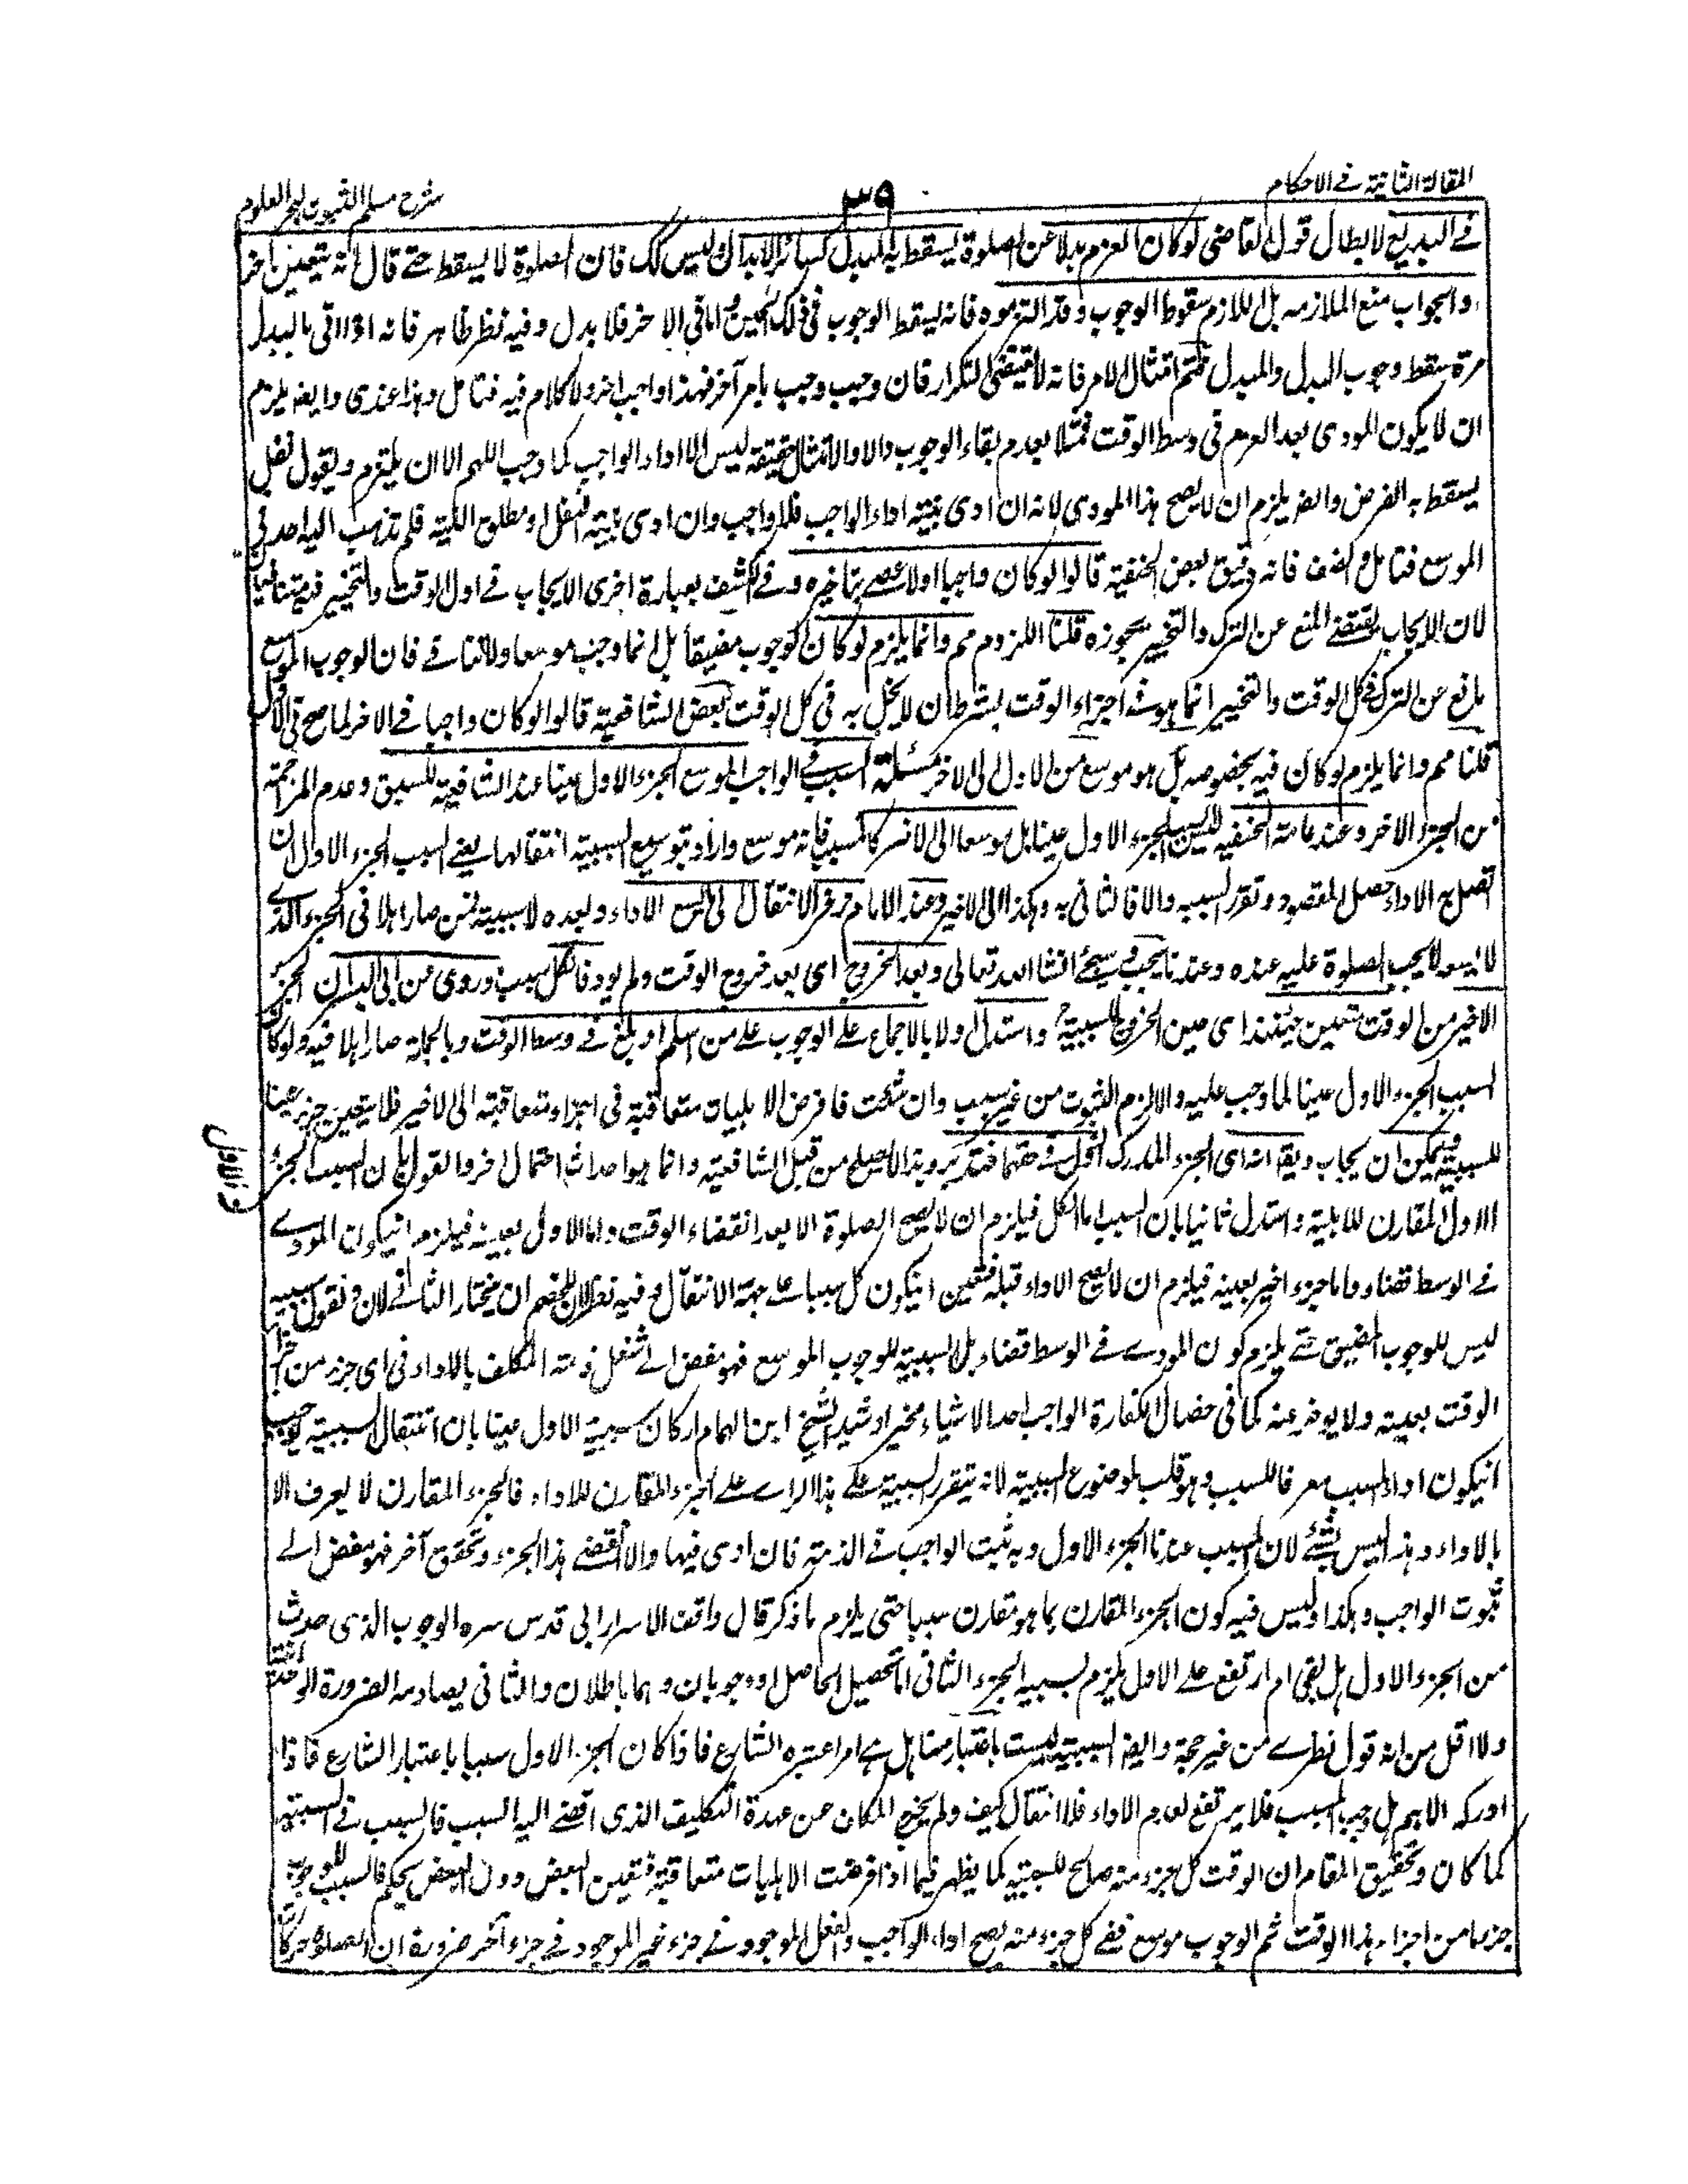 المقالة الثانية فے الاحكام
٣٩
شرح مسلم الثبوت لبحر العلوم
فے البديع لابطال قول القاضى لو كان العزم بدلا عن الصلوة يسقط به المبدل كسائر الابدال وليس كك فان الصلوة لا يسقط حتے قال انه يتعين
والجواب منع الملازمة بل اللازم سقوط الوجوب وقد التزموه فانه يسقط الوجوب فى ذلك الحين الى الاخر فلا بدل وفيه نظر ظاهر فانه اذا اتى بالبدل
مرة سقط وجوب البدل والمبدل فتم امتثال الامر فانه لا يقتضى التكرار فان وجب وجب بامر آخر فهذا واجب اخر ولا كلام فيه فتامل وهذا عندى وايضا يلزم
ان لا يكون المودى بعد العزم فى وسط الوقت ممتثلا بعدم بقاء الوجوب والا والامتثال حقيقة ليس الا اداء الواجب كما وجب اللهم الا ان يلتزم ويقول نفل
يسقط به الفرض وايضا يلزم ان لا يصح هذا المودى لانه ان ادى بنية اداء الواجب فلا واجب وان ادى بنية النفل او مطلق النية فلم يذهب اليه احد فى
الموسع فتامل وانصف فانه دقيق بعض الحنفية قالوا لو كان واجبا اولا عصے بتاخيره وفے الكشف بعبارة اخرى الايجاب فے اول الوقت والتخيير فيه متنافيان
لان الايجاب يقتضے المنع عن الترك والتخيير يجوزه قلنا اللزوم مم وانما يلزم لو كان الوجوب مضيقا بل انما وجب موسعا ولا تنافے فان الوجوب الموسع
مانع عن الترك فے كل الوقت والتخيير انما هو فے اجزاء الوقت بشرط ان لا يخل به فى كل الوقت بعض الشافعية قالوا لو كان واجبا فے الاخر لما صح فى الاول
قلنا مم وانما يلزم لو كان فيه بخصوصه بل هو موسع من الاول الى الاخر مسئلة السبب فے الواجب الموسع الجزء الاول عينا عند الشافعية للسبق وعدم المزاحمة
من الجزء الاخر وعند عامة الحنفية ليس الجزء الاول عينا بل موسعا الى الاخر كالمسبب فانه موسع وارادوا بتوسيع السببية انتقالها يعنے السبب الجزء الاول ان
اتصل به الاداء حصل المقصود وتقرر لسببه والا فالثانى به وهكذا الى الاخير وعند الامام زفر الانتقال الى ما يسع الاداء وبعده لا سببية فمن صار اهلا فى الجزء الذے
لا يسعه لا يجب الصلوة عليه عنده وعندنا يجب وسيجئ انشا الله تعالى وبعد الخروج اى بعد خروج الوقت ولم يود فالكل سبب وروى عن ابى اليسر ان الجزء
الاخير من الوقت متعين حينئذ اى حين الخروج للسببية واستدل اولا بالاجماع علے الوجوب علے من اسلم او بلغ فے وسط الوقت وبالجملة صار اهلا فيه ولو كان
السبب الجزء الاول عينا لما وجب عليه والا لزم الثبوت من غير سبب وان شئت فافرض الاهليات متعاقبة فى اجزاء متعاقبة الى الاخير فلا يتعين جزء عينا
للسببية ويمكن ان يجاب ويقال انه اى الجزء المدرك الاول فے حقهما فتدبر وهذا لا يصلح من قبل الشافعية وانما هو احداث احتمال اخر والقول بان السبب الجزء
الاول المقارن للاهلية واستدل ثانيا بان السبب اما الكل فيلزم ان لا يصح الصلوة الا بعد انقضاء الوقت واما الاول بعينه فيلزم ان يكون المودے
فے الوسط قضاء واما جزء اخير بعينه فيلزم ان لا يصح الاداء قبله فتعين ان يكون كل سببا علے جهة الانتقال وفيه نظر لان للخصم ان يختار الثانے لان نقول سببيته
ليس للوجوب المضيق حتے يلزم كون المودے فے الوسط قضاء بل السببية للوجوب الموسع فهو مفض الے شغل ذمة المكلف بالاداء فى اى جزء من اجزاء
الوقت بعينه ولا يوخر عنه كما فى خصال الكفارة الواجب احد الاشياء مخيرا وشيد الشيخ ابن الهمام اركان سببية الاول عينا بان انتقال السببية يوجب
ان يكون اداء المسبب معرفا للسبب وهو قلب لموضوع السببية لانه يتقرر السببية علے هذا الراے علے الجزء المقارن للاداء فالجزء المقارن لا يعرف الا
بالاداء وهذا ليس بشئے لان السبب عندنا الجزء الاول وبه يثبت الواجب فے الذمة فان ادى فيها والا انقضے هذا الجزء وتحقق آخر فهو مفض الے
ثبوت الواجب وهكذا وليس فيه كون الجزء المقارن بما هو مقارن سببا حتى يلزم ما ذكر قال واقف الاسرار ابى قدس سره الوجوب الذى حدث
من الجزء الاول هل بقى ام ارتفع علے الاول يلزم لسببية الجزء الثانى اما تحصيل الحاصل او وجوبان وهما باطلان والثانى يصادمه الضرورة
ولا اقل من انه قول نظرے من غير حجة وايضا السببية ليست باعتبار منا بل هے امر اعتبره الشارع فاذا كان الجزء الاول سببا باعتبار الشارع فاذا
ادركه الاهل وجب المسبب فلا يرتفع لعدم الاداء فلا انتقال كيف ولم يخرج المكلف عن عهدة التكليف الذى افضے اليه السبب فالسبب فے السببية
كما كان وتحقيق المقام ان الوقت كل جزء منه صالح للسببية كما يظهر فيما اذا فرضت الاهليات متعاقبة فتعين البعض دون البعض تحكم فالسبب للوجوب
جزء ما من اجزاء هذا الوقت ثم الوجوب موسع ففے كل جزء منه يصح اداء الواجب والفعل الموجود فے جزء غير الموجود فے جزء آخر ضرورة ان الصلوة حركات